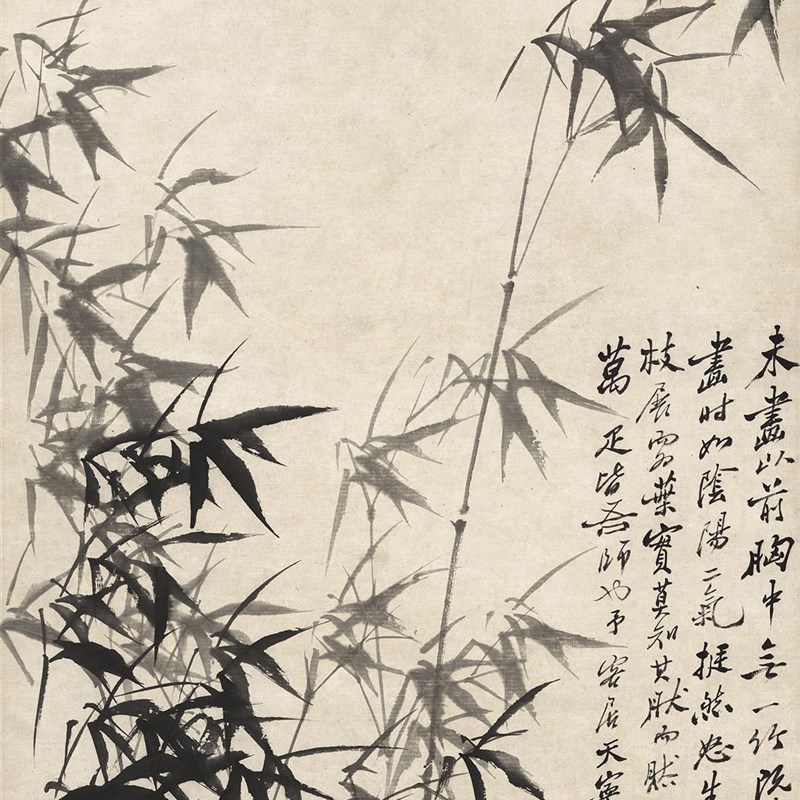 未畫以前胸中無一竹既
畫時如陰陽二氣挺然怒生
枝展而為葉實莫知其然而然
萬疋皆吾師也予客居天寧